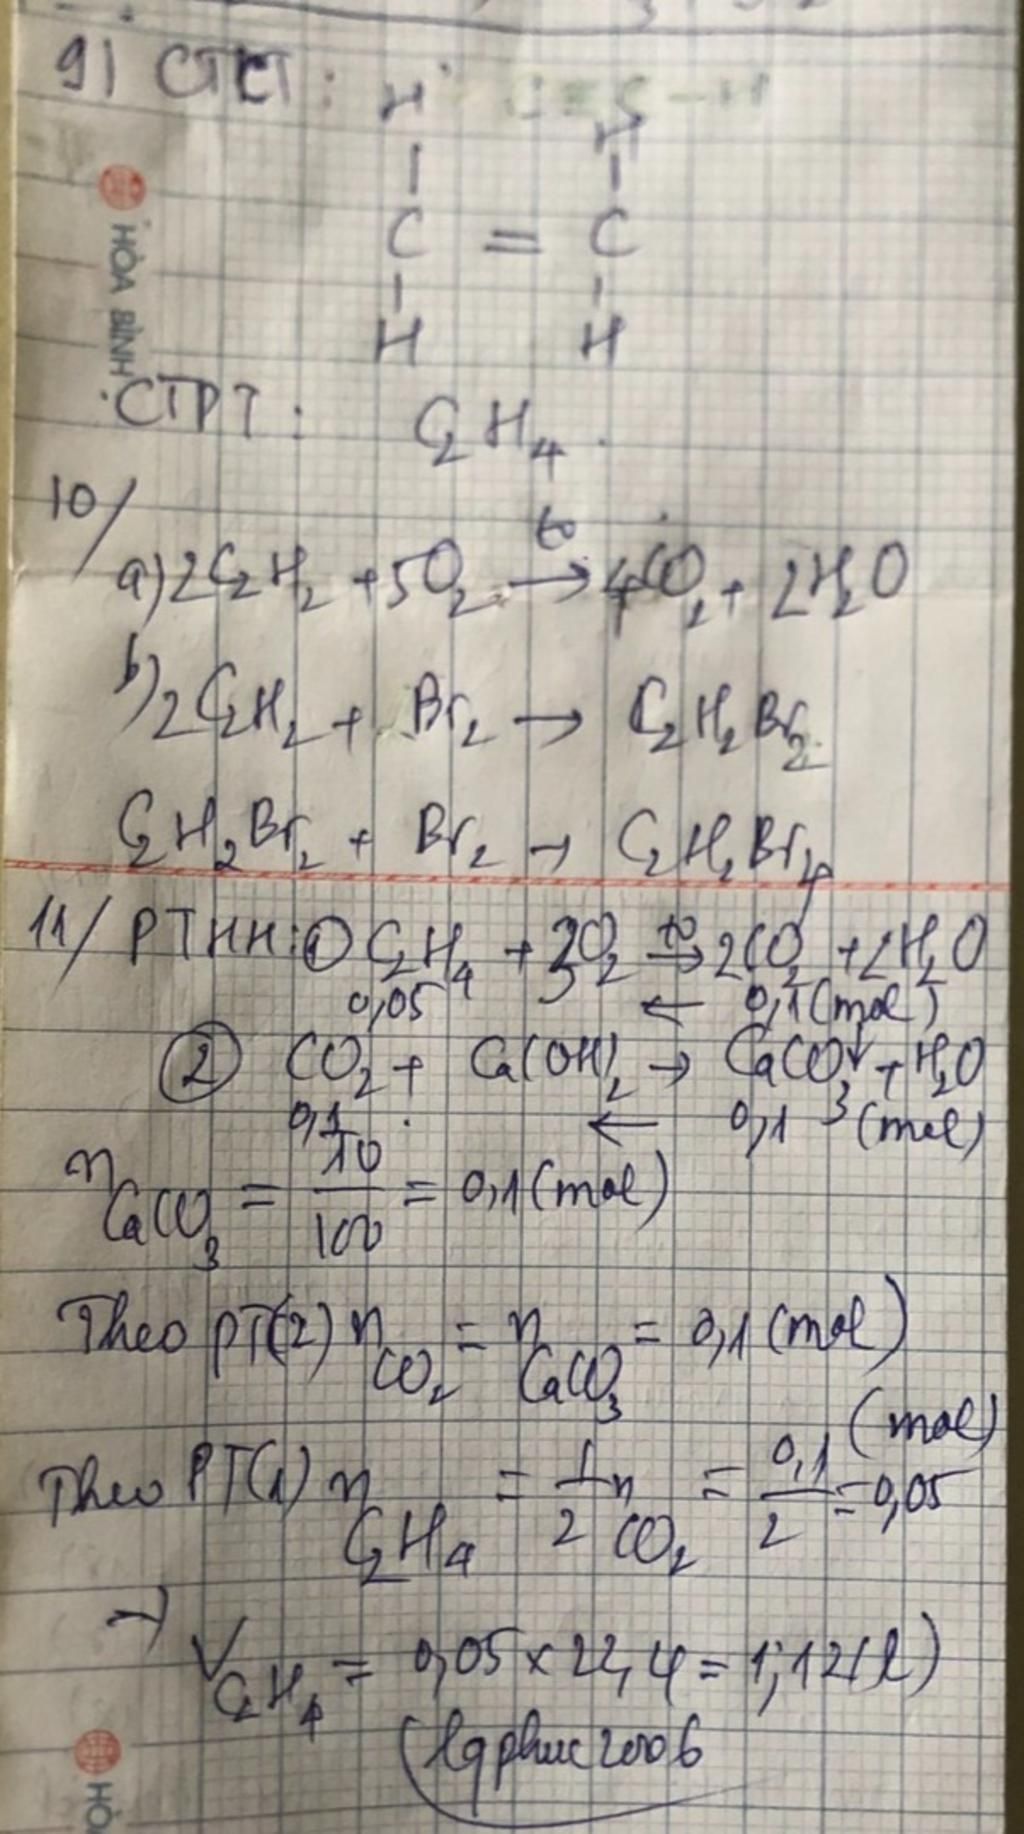 9) CTCT:
H H
| |
C = C
| |
H H
HÒA BÌNH
CTPT: C₂H₄.
10/
a) 2C₂H₂ + 5O₂ →(to) 4CO₂ + 2H₂O
b) 2C₂H₂ + Br₂ → C₂H₂Br₂
C₂H₂Br₂ + Br₂ → C₂H₂Br₄
11/ PTHH: ① C₂H₄ + 3O₂ →(to) 2CO₂ + 2H₂O
0,05 ← 0,1 (mol)
② CO₂ + Ca(OH)₂ → CaCO₃↓ + H₂O
0,1 ← 0,1 (mol)
nCaCO₃ = 10/100 = 0,1 (mol)
Theo PT(2) nCO₂ = nCaCO₃ = 0,1 (mol)
Theo PT(1) nC₂H₄ = 1/2 nCO₂ = 0,1/2 = 0,05 (mol)
→ VC₂H₄ = 0,05 × 22,4 = 1,12 (l)
lqphuc2006
HÒ